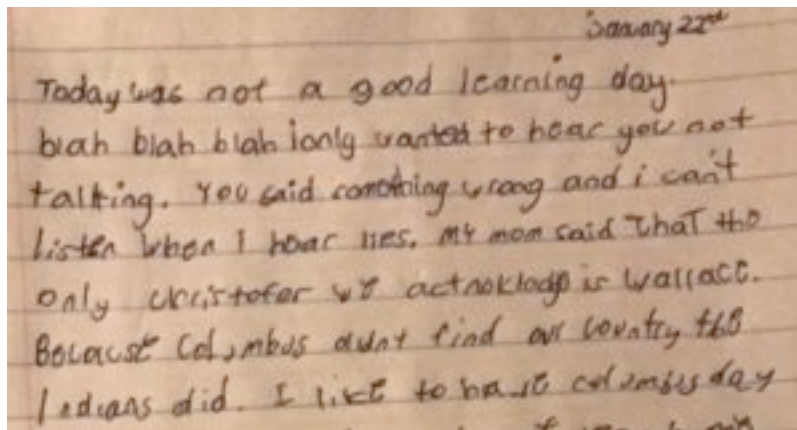 January 22nd
Today was not a good learning day.
blah blah blah i only wanted to hear you not
talking. You said something wrong and i can't
listen when I hear lies. My mom said that the
only christofer we acknoklodge is wallace.
Because Columbus didnt find our country the
Indians did. I like to have columbus day